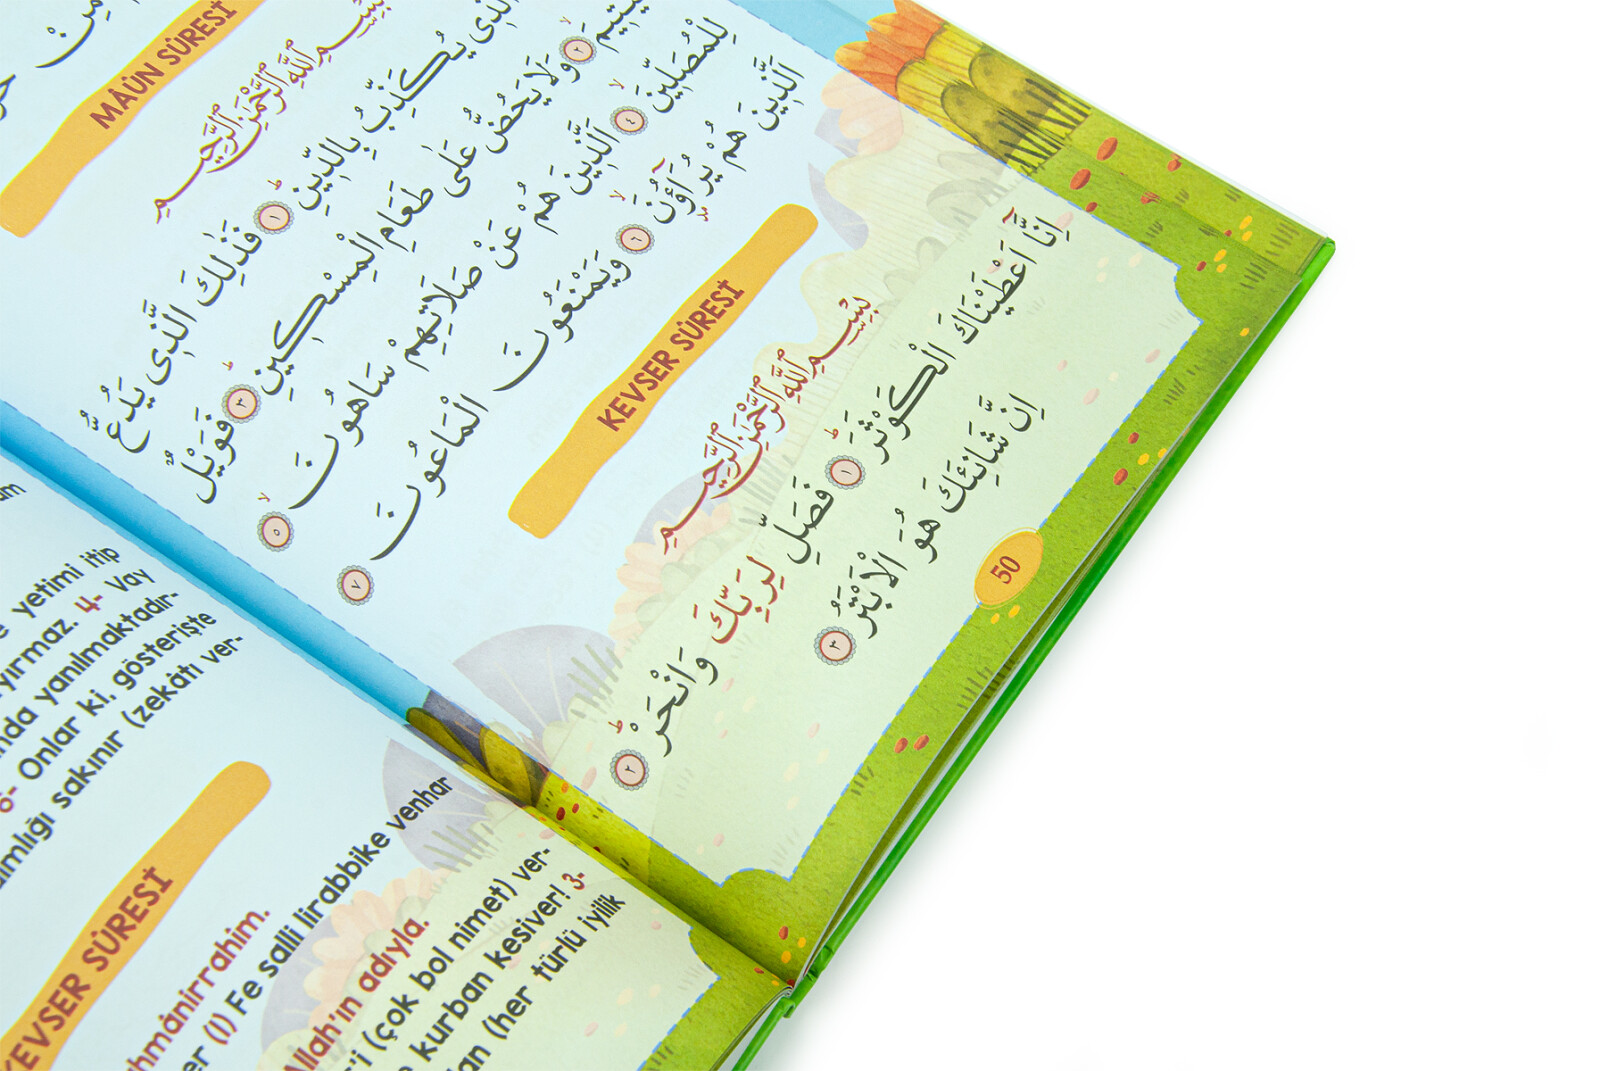 MÂÛN SÛRESİ
بِسْمِ اللّٰهِ الرَّحْمٰنِ الرَّحٖيمِ
يُكَذِّبُ بِالدّٖينِ ﴿١﴾ فَذٰلِكَ الَّذٖى يَدُعُّ
﴿٢﴾ وَلَا يَحُضُّ عَلٰى طَعَامِ الْمِسْكٖينِ ﴿٣﴾ فَوَيْلٌ
لِلْمُصَلّٖينَ ﴿٤﴾ اَلَّذٖينَ هُمْ عَنْ صَلَاتِهِمْ سَاهُونَ ﴿٥﴾
اَلَّذٖينَ هُمْ يُرَٓاؤُ۫نَ ﴿٦﴾ وَيَمْنَعُونَ الْمَاعُونَ ﴿٧﴾
KEVSER SÛRESİ
بِسْمِ اللّٰهِ الرَّحْمٰنِ الرَّحٖيمِ
اِنَّٓا اَعْطَيْنَاكَ الْكَوْثَرَ ﴿١﴾ فَصَلِّ لِرَبِّكَ وَانْحَرْ ﴿٢﴾
اِنَّ شَانِئَكَ هُوَ الْاَبْتَرُ ﴿٣﴾
50
yetimi itip
4- Vay
yanılmaktadır-
Onlar ki, gösterişte
sakınır (zekâtı ver-
KEVSER SÛRESİ
(1) Fe salli lirabbike venhar
Allah'ın adıyla.
(çok bol nimet) ver-
kurban kesiver! 3-
(her türlü iyilik